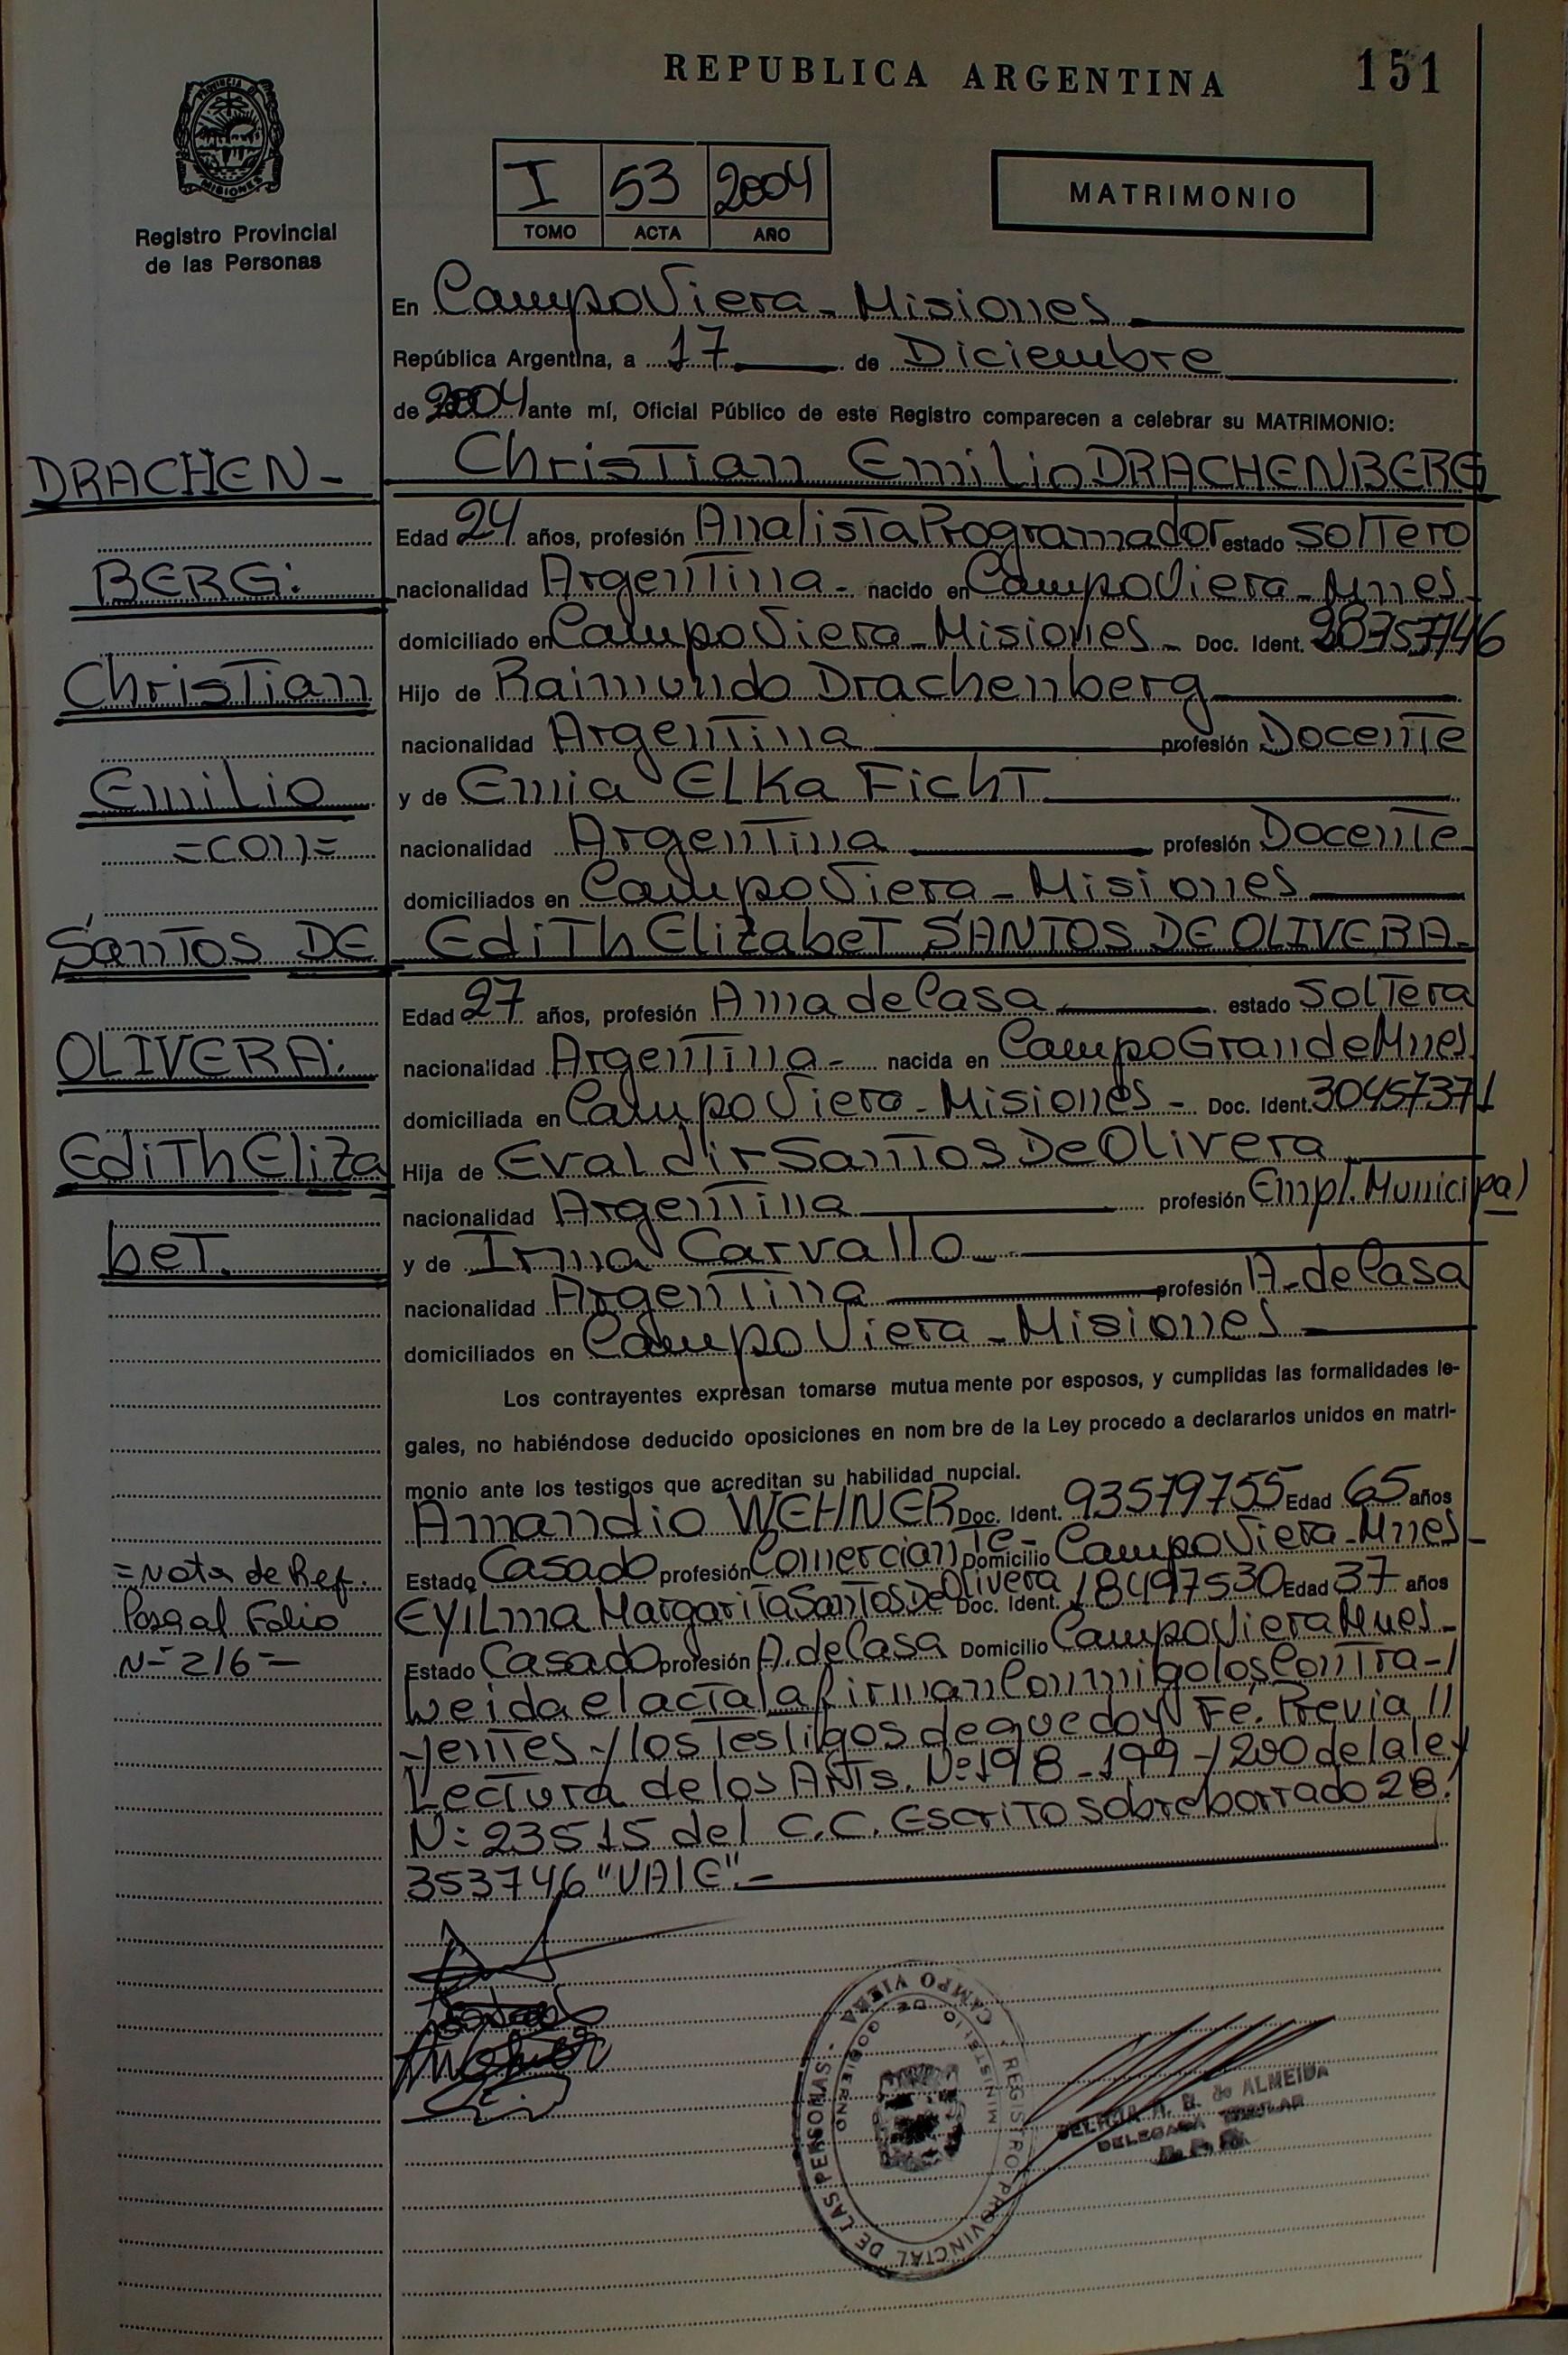 REPUBLICA ARGENTINA
151
PROVINCIA DE MISIONES
Registro Provincial
de las Personas
I 53 2004
TOMO ACTA AÑO
MATRIMONIO
En Campo Viera - Misiones
República Argentina, a 17 de Diciembre
de 2004 ante mí, Oficial Público de este Registro comparecen a celebrar su MATRIMONIO:
Christian Emilio DRACHENBERG
Edad 24 años, profesión Analista Programador estado Soltero
nacionalidad Argentina - nacido en Campo Viera - Mnes -
domiciliado en Campo Viera - Misiones - Doc. Ident.
Hijo de Raimundo Drachenberg
nacionalidad Argentina profesión Docente
y de Emia Elka Ficht
nacionalidad Argentina profesión Docente
domiciliados en Campo Viera - Misiones
Edith Elizabet SANTOS DE OLIVERA -
Edad 27 años, profesión Ama de Casa estado Soltera
nacionalidad Argentina - nacida en Campo Grande Mnes
domiciliada en Campo Viera - Misiones - Doc. Ident. 30457371
Hija de Evaldir Santos De Olivera
nacionalidad Argentina profesión Empl. Municipal
y de Irma Carvallo
nacionalidad Argentina profesión A. de Casa
domiciliados en Campo Viera - Misiones
Los contrayentes expresan tomarse mutua mente por esposos, y cumplidas las formalidades le-
gales, no habiéndose deducido oposiciones en nom bre de la Ley procedo a declararlos unidos en matri-
monio ante los testigos que acreditan su habilidad nupcial.
Amandio WEHNER Doc. Ident. 93579755 Edad 65 años
Estado Casado profesión Comerciante - Domicilio Campo Viera - Mnes -
Eyilma Margarita Santos De Olivera Doc. Ident. 18497530 Edad 37 años
Estado Casado profesión A. de Casa Domicilio Campo Viera Mnes -
Leida el acta la firman Conmigo los Contra-/
yentes y los testigos de que doy Fé. Previa //
Lectura de los Arts. Nº 198 - 199 y 200 de la ley
Nº 23515 del C.C. Escrito sobreborrado 28.
353746 "VALE" -
DRACHEN-
BERG:
Christian
Emilio
=con=
Santos DE
OLIVERA:
Edith Eliza
bet.
=Nota de Ref.
Pasa al Folio
Nº 216=
REGISTRO PROVINCIAL DE LAS PERSONAS - CAMPO VIERA
MINISTERIO DE GOBIERNO
A. B. de ALMEIDA
DELEGADA TITULAR